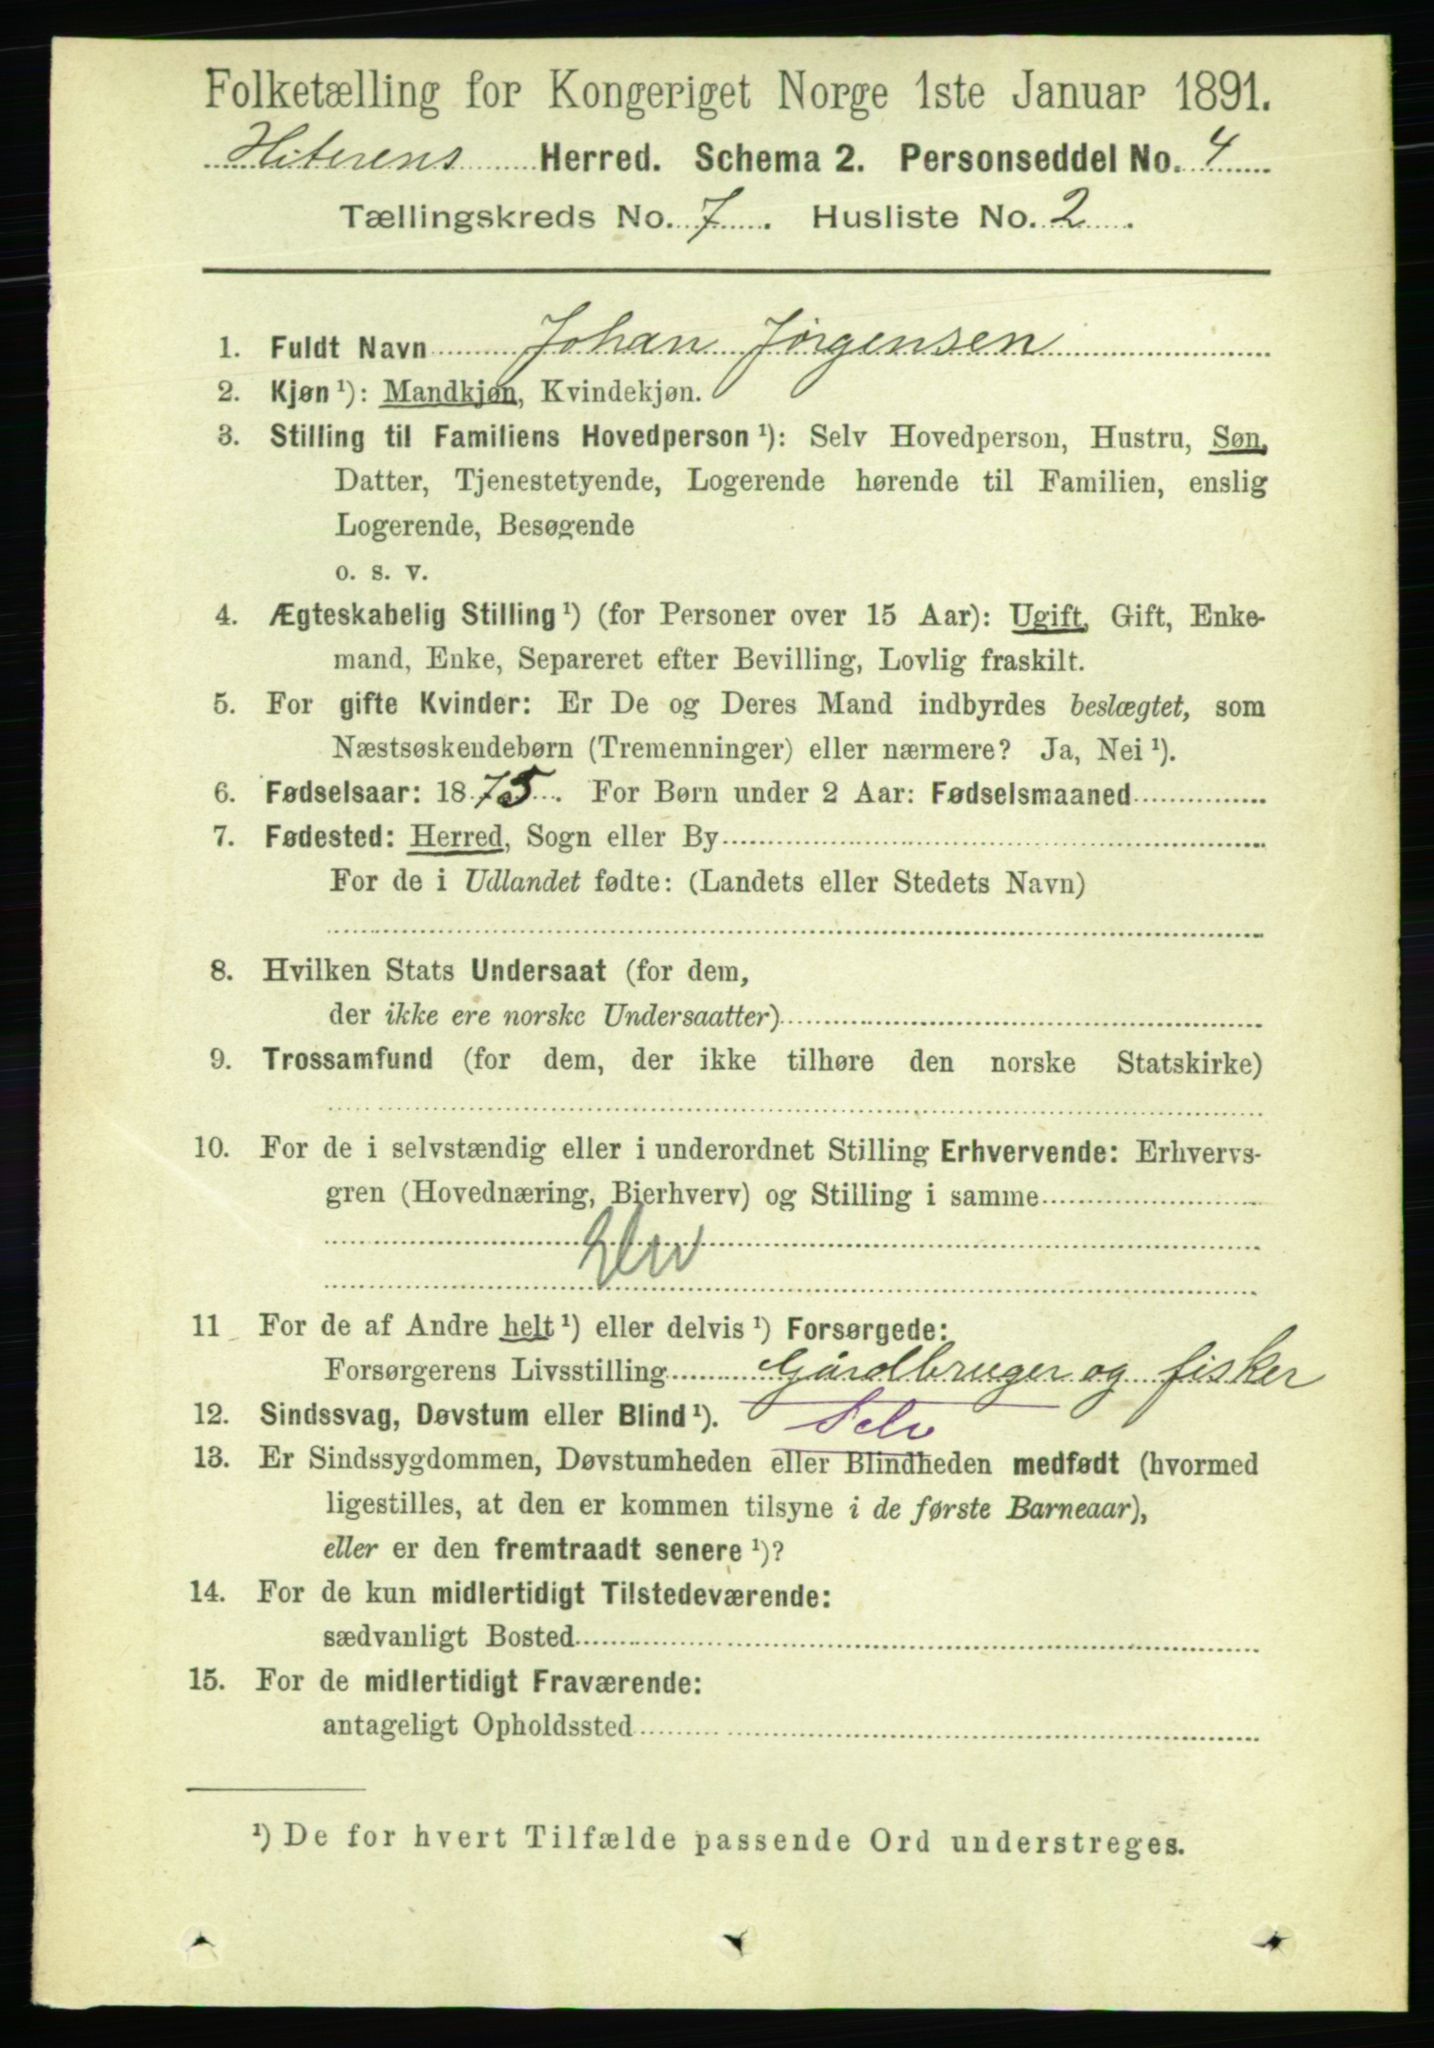 Folketælling for Kongeriget Norge 1ste Januar 1891.
Hiterens Herred. Schema 2. Personseddel No. 4
Tællingskreds No. 7. Husliste No. 2.
1. Fuldt Navn Johan Jörgensen
2. Kjøn ¹): Mandkjøn, Kvindekjøn.
3. Stilling til Familiens Hovedperson ¹): Selv Hovedperson, Hustru, Søn,
Datter, Tjenestetyende, Logerende hørende til Familien, enslig
Logerende, Besøgende
o. s. v.
4. Ægteskabelig Stilling ¹) (for Personer over 15 Aar): Ugift, Gift, Enke-
mand, Enke, Separeret efter Bevilling, Lovlig fraskilt.
5. For gifte Kvinder: Er De og Deres Mand indbyrdes beslægtet, som
Næstsøskendebørn (Tremenninger) eller nærmere? Ja, Nei ¹).
6. Fødselsaar: 1875. For Børn under 2 Aar: Fødselsmaaned
7. Fødested: Herred, Sogn eller By
For de i Udlandet fødte: (Landets eller Stedets Navn)
8. Hvilken Stats Undersaat (for dem,
der ikke ere norske Undersaatter)
9. Trossamfund (for dem, der ikke tilhøre den norske Statskirke)
10. For de i selvstændig eller i underordnet Stilling Erhvervende: Erhvervs-
gren (Hovednæring, Bierhverv) og Stilling i samme
11 For de af Andre helt ¹) eller delvis ¹) Forsørgede:
Forsørgerens Livsstilling Gårdbruger og fisker
12. Sindssvag, Døvstum eller Blind ¹). Selv
13. Er Sindssygdommen, Døvstumheden eller Blindheden medfødt (hvormed
ligestilles, at den er kommen tilsyne i de første Barneaar),
eller er den fremtraadt senere ¹)?
14. For de kun midlertidigt Tilstedeværende:
sædvanligt Bosted
15. For de midlertidigt Fraværende:
antageligt Opholdssted
¹) De for hvert Tilfælde passende Ord understreges.